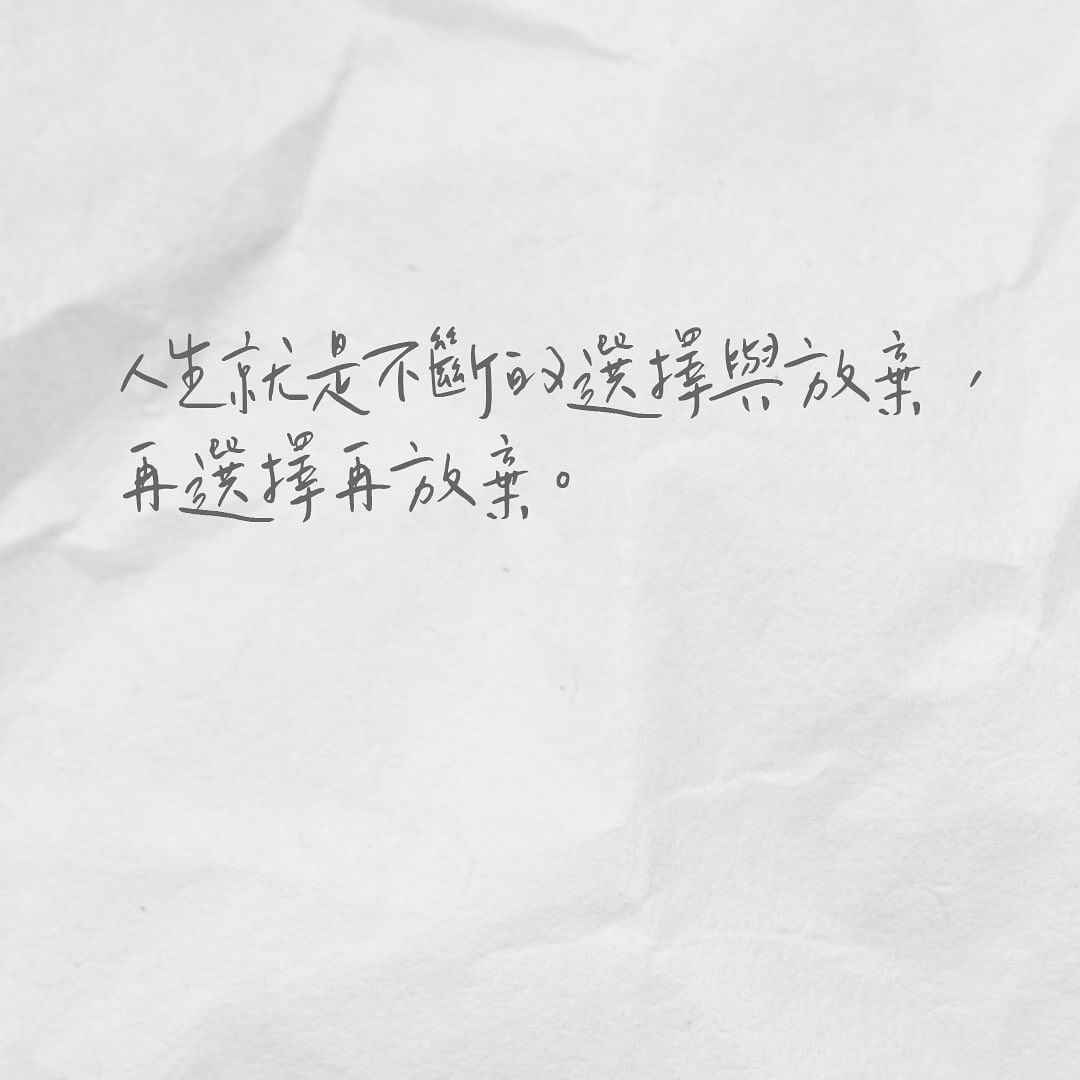 人生就是不斷的選擇與放棄，
再選擇再放棄。